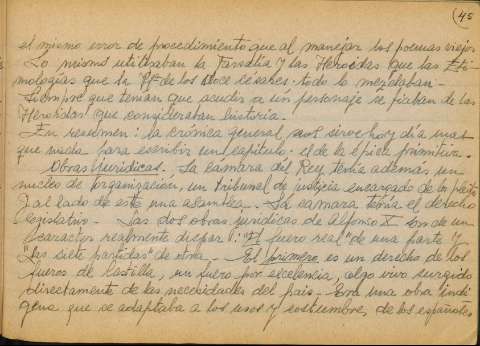 (45
el mismo error de procedimiento que al manejar los poemas viejos
Lo mismo utilizaban la Farsalia y las Heroidas que las Eti-
mologías que la Hª de los Doce césares - todo lo mezclaban -
Siempre que tenían que acudir a un personaje se fiaban de las
Heroidas que consideraban historia.
En resumen: la crónica general nos sirve hoy día más
que nada para escribir un capítulo: el de la épica primitiva.
Obras jurídicas. La cámara del Rey tenía además un
núcleo de organización, un tribunal de justicia encargado de los pleitos
y al lado de este una asamblea. - La cámara tenía el derecho
legislativo - Las dos obras jurídicas de Alfonso X son de un
caracter realmente dispar: "El fuero real" de una parte y
"Las siete partidas" de otra. - El primero es un derecho de los
fueros de Castilla, un fuero por excelencia, algo vivo surgido
directamente de las necesidades del pais - Era una obra indí-
gena que se adaptaba a los usos y costumbres, de los españoles